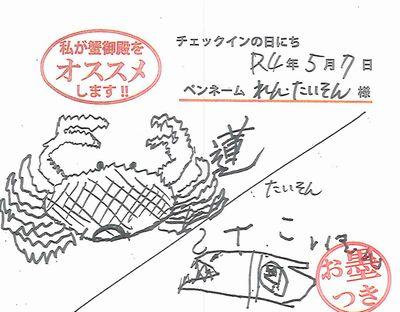 私が蟹御殿を
オススメ
します!!
チェックインの日にち
R4年5月7日
ペンネーム れん・たいそん 様
蓮
たいそん
こ
お墨
つき